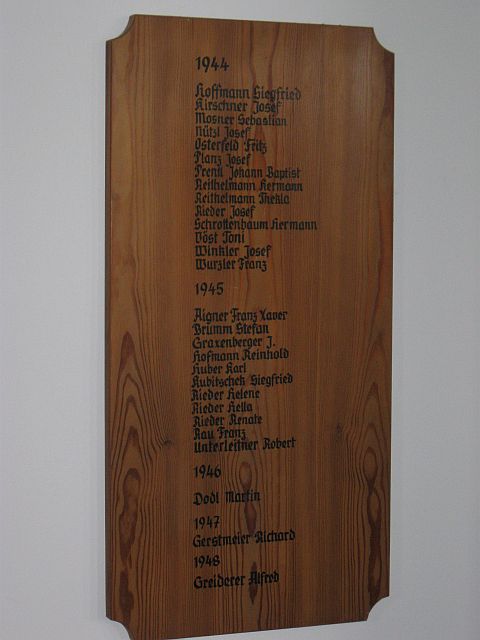 1944
Hoffmann Siegfried
Kirschner Josef
Mosner Sebastian
Nützl Josef
Osterfeld Fritz
Planz Josef
Prentl Johann Baptist
Reithelmann Hermann
Reithelmann Thekla
Rieder Josef
Schrottenbaum Hermann
Vöst Toni
Winkler Josef
Wurzler Franz
1945
Aigner Franz Xaver
Brumm Stefan
Graxenberger J.
Hofmann Reinhold
Huber Karl
Kubitschek Siegfried
Rieder Helene
Rieder Hella
Rieder Renate
Rau Franz
Unterleitner Robert
1946
Dodl Martin
1947
Gerstmeier Richard
1948
Greiderer Alfred